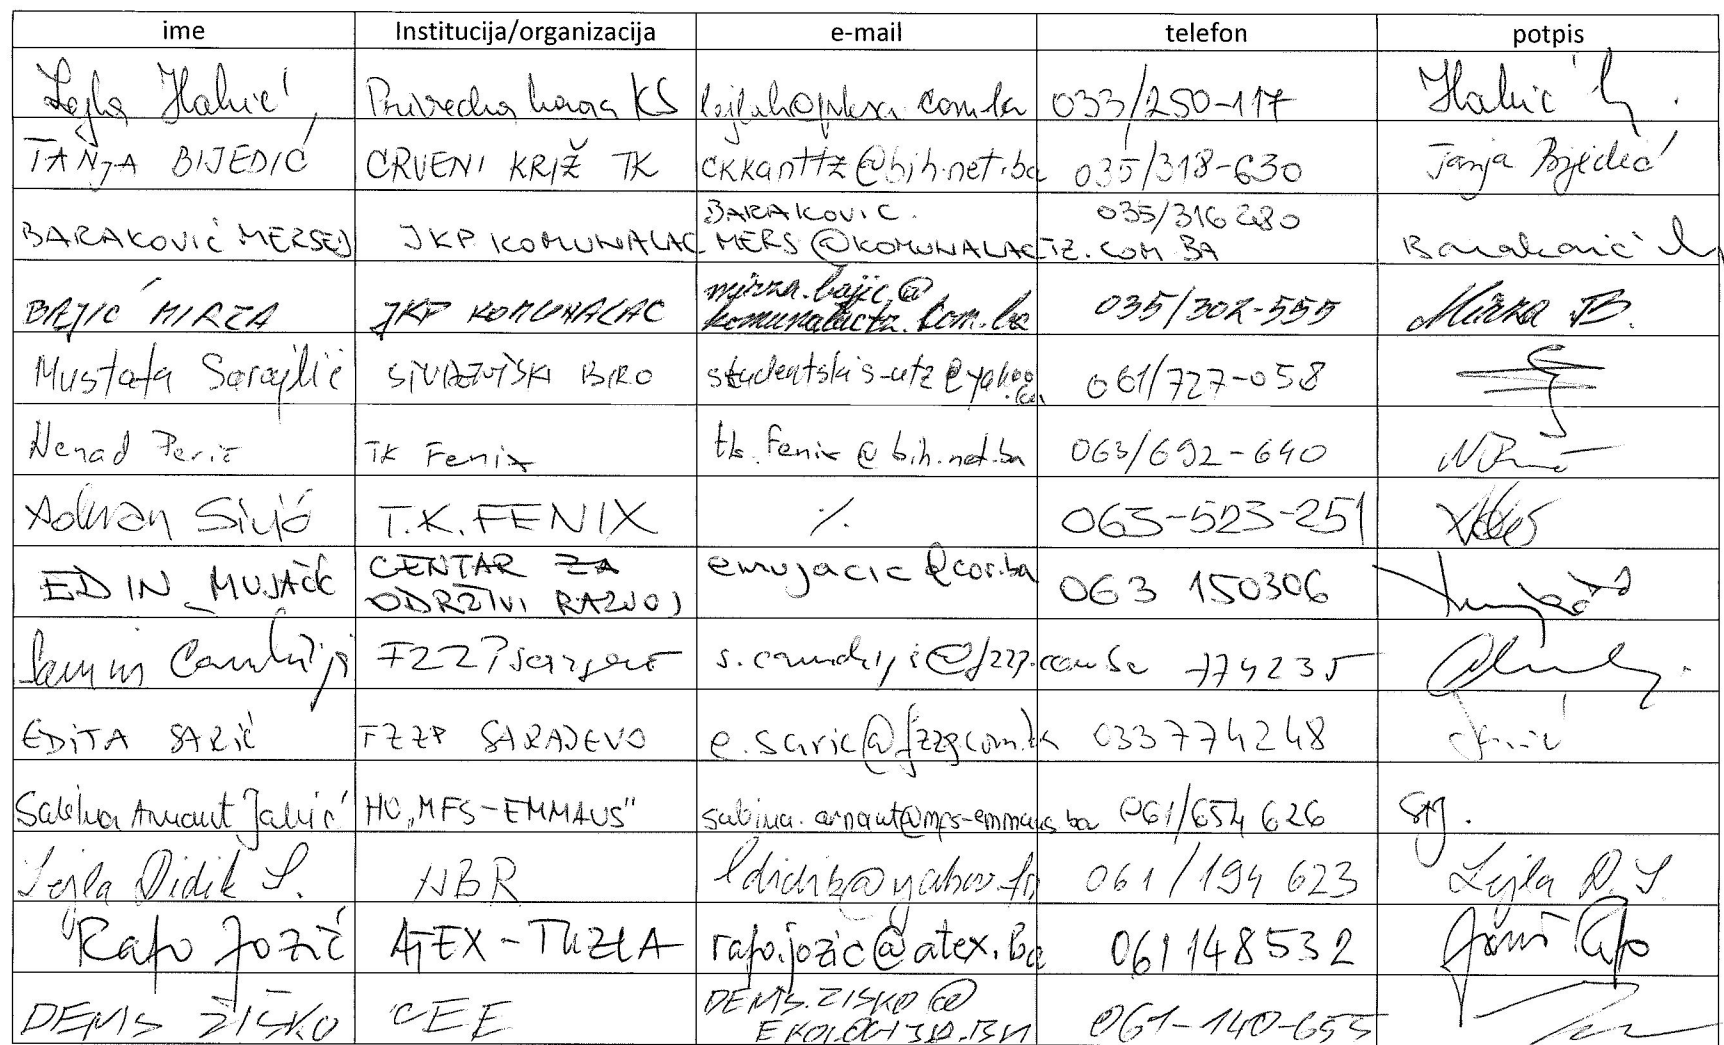 ime Institucija/organizacija e-mail telefon potpis
Lejla Hakić Privredna komora KS 033/250-117 Hakić L.
TANJA BIJEDIĆ CRVENI KRIŽ TK ckkanttz@bih.net.ba 035/318-630 Tanja Bijedić
BARAKOVIĆ MERSEJ JKP KOMUNALAC BARAKOVIC.MERS@KOMUNALACTZ.COM.BA 035/316 280 Baraković M
BAJIĆ MIRZA JKP KOMUNALAC mirza.bajic@komunalactz.com.ba 035/302-555 Mirza B.
Mustafa Sarajlić 061/727-058
Nenad Perić TK Fenix tk.fenix@bih.net.ba 063/692-640
Adnan T.K. FENIX /. 063-523-251
EDIN MUJAČIĆ CENTAR ZA ODRŽIVI RAZVOJ emujacic@cor.ba 063 150306
774235
EDITA SARIĆ FZZP SARAJEVO 033 774248
Sabina Arnaut Jahić HO „MFS-EMMAUS" sabina.arnaut@mfs-emmaus.ba 061/654 626 SAJ.
Lejla Didik S. NBR 061/194 623 Lejla D. S
Rafo Jozić ATEX-TUZLA rafo.jozic@atex.ba 061 148532 Jozić Rafo
DENIS ŽIŠKO CEE DENIS.ZISKO@EKOLOGIJA.BA 061-140-655